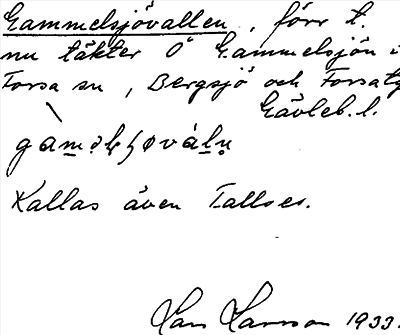 Gammelsjövallen, förr t.
nu täkter O Gammelsjön i
Forsa sn, Bergsjö och Forsa tg
Gävleb. l.
Kallas även
Lars Larsson 1933.